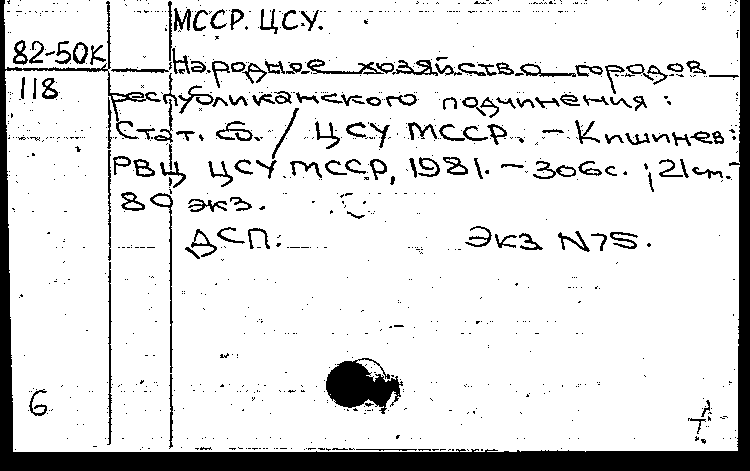 МССР. ЦСУ.
82-50К
Народное хозяйство городов
118
республиканского подчинения :
Стат. сб. / ЦСУ МССР. - Кишинев :
РВЦ ЦСУ МССР, 1981. - 306с. ; 21 см. -
80 экз.
ДСП. Экз N75.
6